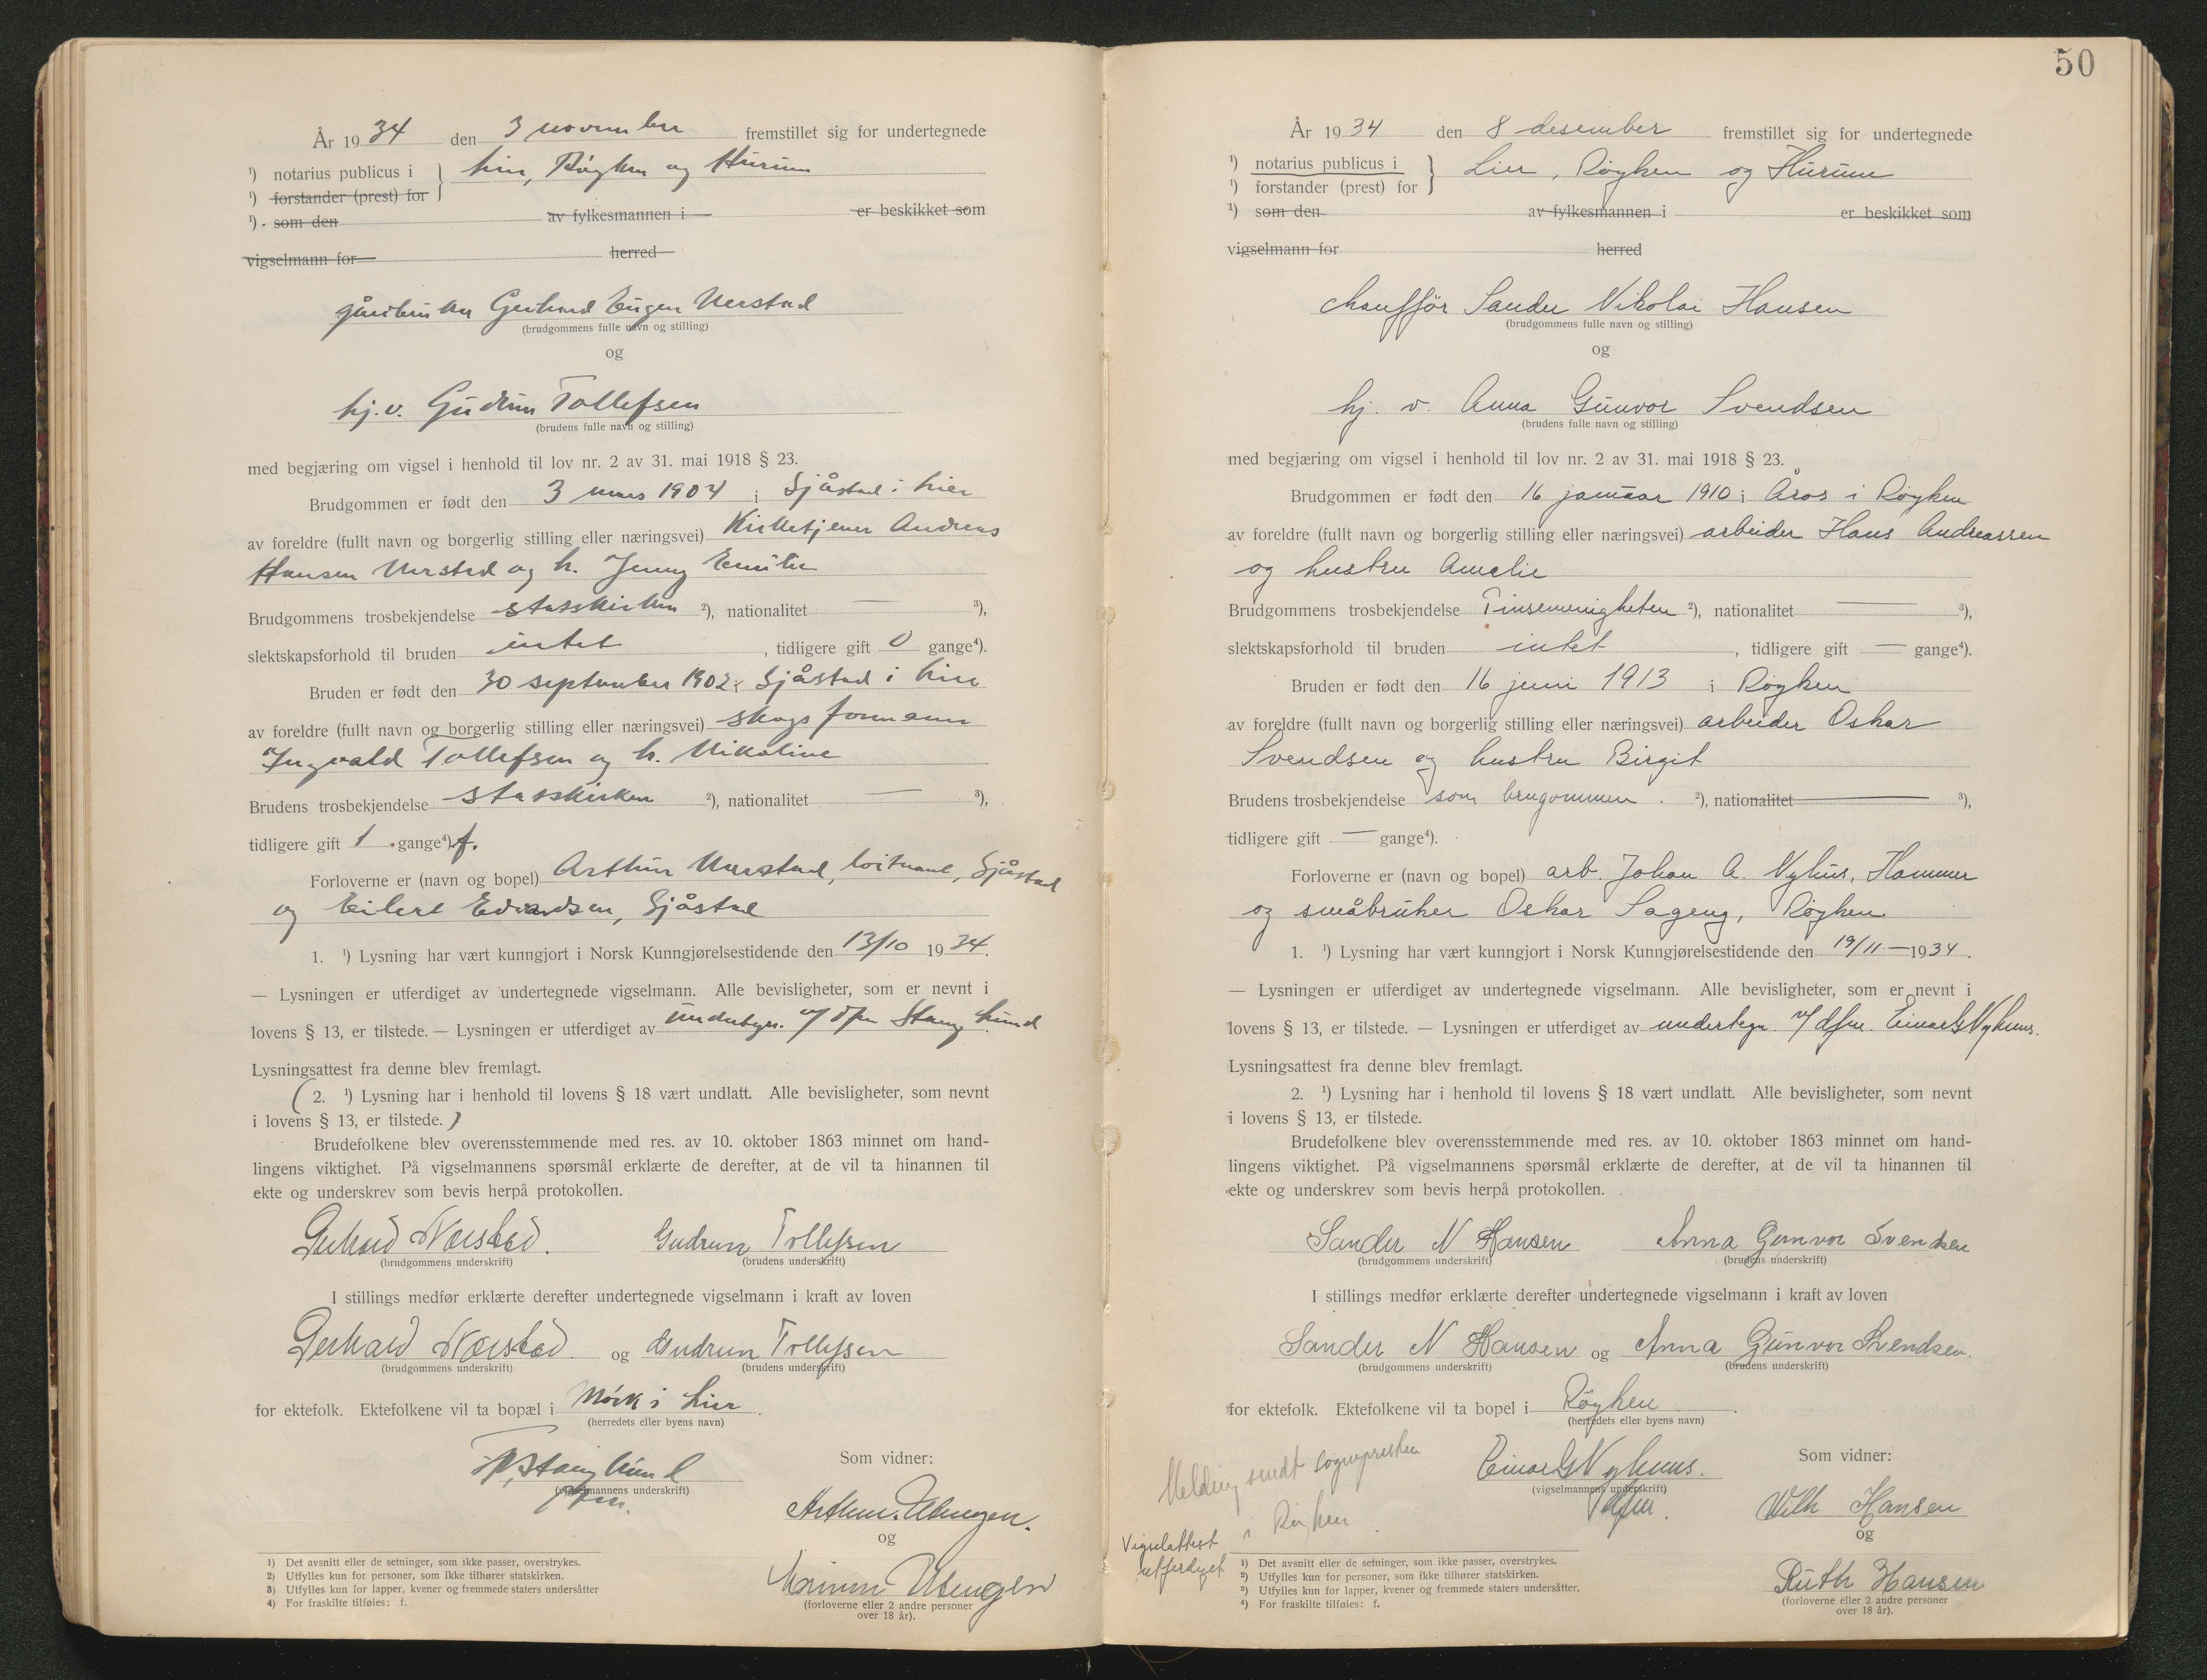 År 1934 den 3 november fremstillet sig for undertegnede
¹) notarius publicus i } Lier, Røyken og Hurum
¹) forstander (prest) for
¹) som den av fylkesmannen i er beskikket som
vigselmann for herred
gårdbruker Gerhard Eugen Nerstad
(brudgommens fulle navn og stilling)
og
hj. v. Gudrun Tollefsen
(brudens fulle navn og stilling)
med begjæring om vigsel i henhold til lov nr. 2 av 31. mai 1918 § 23.
Brudgommen er født den 3 mars 1904 i Sjåstad i Lier
av foreldre (fullt navn og borgerlig stilling eller næringsvei) Kirketjener Andreas
Hansen Nerstad og h. Jenny Emilie
Brudgommens trosbekjendelse statskirken ²), nationalitet — ³),
slektskapsforhold til bruden intet, tidligere gift 0 gange⁴).
Bruden er født den 30 september 1902 i Sjåstad i Lier
av foreldre (fullt navn og borgerlig stilling eller næringsvei) skogsformann
Ingvald Tollefsen og h. Nikoline
Brudens trosbekjendelse statskirken ²), nationalitet — ³),
tidligere gift 1 gange⁴) f.
Forloverne er (navn og bopel) Arthur Nerstad, loitnant, Sjåstad
og Eilert Edvardsen, Sjåstad
1. ¹) Lysning har vært kunngjort i Norsk Kunngjørelsestidende den 13/10 1934.
— Lysningen er utferdiget av undertegnede vigselmann. Alle bevisligheter, som er nevnt i
lovens § 13, er tilstede. — Lysningen er utferdiget av undertegn. v/ dfm Stang Lund
Lysningsattest fra denne blev fremlagt.
(2. ¹) Lysning har i henhold til lovens § 18 vært undlatt. Alle bevisligheter, som nevnt
i lovens § 13, er tilstede.)
Brudefolkene blev overensstemmende med res. av 10. oktober 1863 minnet om hand-
lingens viktighet. På vigselmannens spørsmål erklærte de derefter, at de vil ta hinannen til
ekte og underskrev som bevis herpå protokollen.
Gerhard Nerstad. Gudrun Tollefsen
(brudgommens underskrift) (brudens underskrift)
I stillings medfør erklærte derefter undertegnede vigselmann i kraft av loven
Gerhard Nerstad. og Gudrun Tollefsen
(brudgommens underskrift) (brudens underskrift)
for ektefolk. Ektefolkene vil ta bopæl i Mörk i Lier.
(herredets eller byens navn)
Stang Lund Som vidner:
(vigselmannens underskrift)
dfm.
Arthur Utengen.
og
Utengen
(forloverne eller 2 andre personer
over 18 år).
1) Det avsnitt eller de setninger, som ikke passer, overstrykes.
2) Utfylles kun for personer, som ikke tilhører statskirken.
3) Utfylles kun for lapper, kvener og fremmede staters undersåtter
4) For fraskilte tilføies: f.
50
År 1934 den 8 desember fremstillet sig for undertegnede
¹) notarius publicus i } Lier, Røyken og Hurum
¹) forstander (prest) for
¹) som den av fylkesmannen i er beskikket som
vigselmann for herred
chauffør Sander Nikolai Hansen
(brudgommens fulle navn og stilling)
og
hj. v. Anna Gunvor Svendsen
(brudens fulle navn og stilling)
med begjæring om vigsel i henhold til lov nr. 2 av 31. mai 1918 § 23.
Brudgommen er født den 16 januar 1910 i Åros i Røyken
av foreldre (fullt navn og borgerlig stilling eller næringsvei) arbeider Hans Andreassen
og hustru Amelie
Brudgommens trosbekjendelse Pinsemenigheten ²), nationalitet — ³),
slektskapsforhold til bruden intet, tidligere gift — gange⁴).
Bruden er født den 16 juni 1913 i Røyken
av foreldre (fullt navn og borgerlig stilling eller næringsvei) arbeider Oskar
Svendsen og hustru Birgit
Brudens trosbekjendelse som brugommen. ²), nationalitet — ³),
tidligere gift — gange⁴).
Forloverne er (navn og bopel) arb. Johan A. Nyhus, Hammer
og småbruker Oskar Sageng, Røyken
1. ¹) Lysning har vært kunngjort i Norsk Kunngjørelsestidende den 19/11 — 1934.
— Lysningen er utferdiget av undertegnede vigselmann. Alle bevisligheter, som er nevnt i
lovens § 13, er tilstede. — Lysningen er utferdiget av undertegn. v/ dfm. Einar G Nyhuus.
Lysningsattest fra denne blev fremlagt.
2. ¹) Lysning har i henhold til lovens § 18 vært undlatt. Alle bevisligheter, som nevnt
i lovens § 13, er tilstede.
Brudefolkene blev overensstemmende med res. av 10. oktober 1863 minnet om hand-
lingens viktighet. På vigselmannens spørsmål erklærte de derefter, at de vil ta hinannen til
ekte og underskrev som bevis herpå protokollen.
Sander N Hansen Anna Gunvor Svendsen
(brudgommens underskrift) (brudens underskrift)
I stillings medfør erklærte derefter undertegnede vigselmann i kraft av loven
Sander N Hansen og Anna Gunvor Svendsen.
(brudgommens underskrift) (brudens underskrift)
for ektefolk. Ektefolkene vil ta bopel i Røyken.
(herredets eller byens navn)
Melding sendt sognepresten
i Røyken.
Vigselattest
utferdiget
Einar G Nyhuus. Som vidner:
(vigselmannens underskrift)
dfm.
Wilh Hansen
og
Ruth Hansen
(forloverne eller 2 andre personer
over 18 år).
¹) Det avsnitt eller de setninger, som ikke passer, overstrykes.
²) Utfylles kun for personer, som ikke tilhører statskirken.
³) Utfylles kun for lapper, kvener og fremmede staters undersåtter.
⁴) For fraskilte tilføies: f.